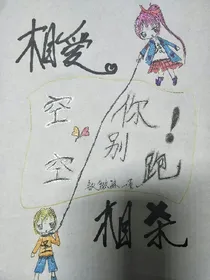 相爱
空空
你别跑！
相杀